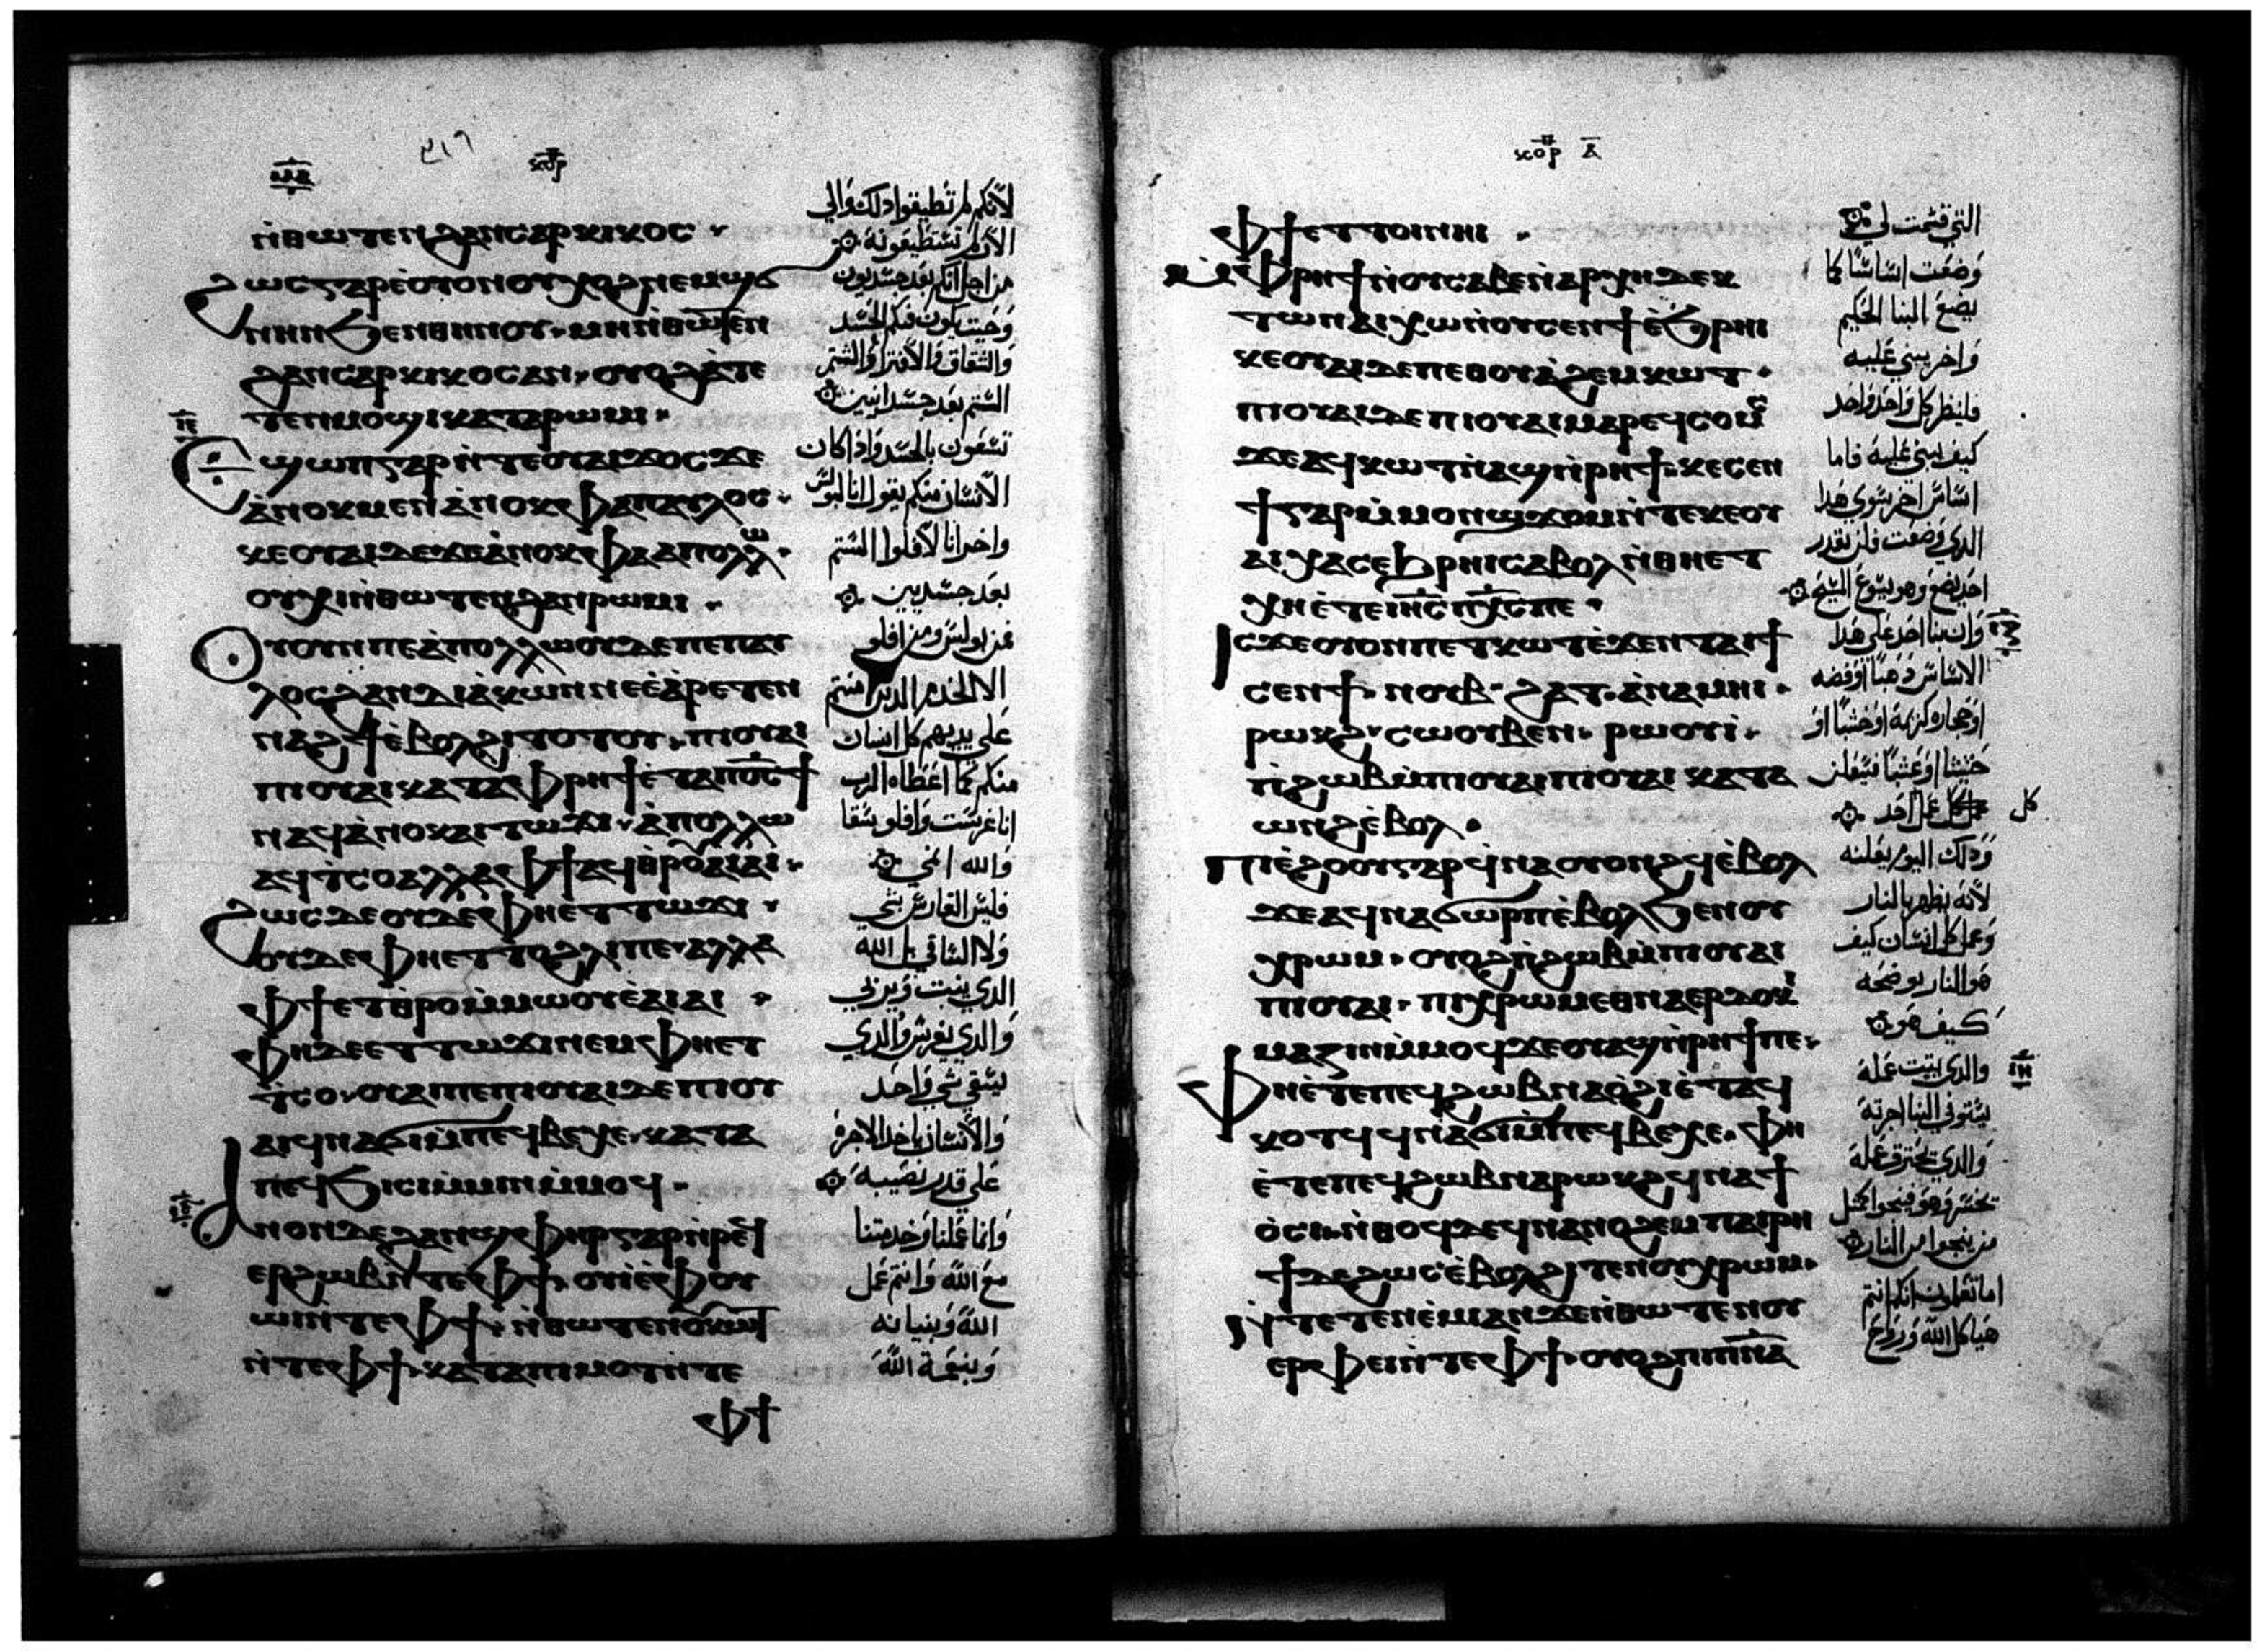 ⲛ̀ⲑⲱⲧⲉⲛϩⲁⲛⲥⲁⲣⲕⲓⲕⲟⲥ
ϩⲱⲥⲅⲁⲣⲉ̀ⲟⲩⲟⲛⲟⲩⲭⲟϩⲛⲉⲙϣϭ
ⲛⲏⲛϧⲉⲛⲑⲏⲛⲟⲩ ⲙⲏⲛ̀ⲑⲱⲧⲉⲛ
ϩⲁⲛⲥⲁⲣⲕⲓⲕⲟⲥⲁⲛ ⲟⲩⲟϩⲁ̀ⲧⲉ
ⲧⲉⲛⲙⲟϣⲓⲕⲁⲧⲁⲣⲱⲙⲓ
ⲓⲉ
Ⲉϣⲱⲡⲅⲁⲣⲛ̀ⲧⲉⲟⲩⲁⲓϫⲟⲥϫⲉ
ⲁ̀ⲛⲟⲕⲙⲉⲛⲁ̀ⲛⲟⲕⲫⲁⲡⲁⲩⲗⲟⲥ
ⲕⲉⲟⲩⲁⲓⲇⲉϫⲉⲁ̀ⲛⲟⲕⲫⲁⲁⲡⲟⲗⲗⲱ
ⲟⲩⲭⲓⲛ̀ⲑⲱⲧⲉⲛϩⲁⲛⲣⲱⲙⲓ
Ⲟⲩⲟⲩⲛⲡⲉⲁ̀ⲡⲟⲗⲗⲱⲟⲩⲇⲉⲡⲉⲡⲁⲩ
ⲗⲟⲥϩⲁⲛⲇⲓⲁ̀ⲕⲱⲛⲛⲉⲉ̀ⲁ̀ⲣⲉⲧⲉⲛ
ⲛⲁϩϯⲉ̀ⲃⲟⲗϩⲓⲧⲟⲧⲟⲩ ⲡⲓⲟⲩⲁⲓ
ⲡⲓⲟⲩⲁⲓⲕⲁⲧⲁⲫⲣⲏϯⲉ̀ⲧⲁⲡⲟ̅ⲥ̅ϯ
ⲛⲁϥⲁ̀ⲛⲟⲕⲁⲓⲧⲱϫⲓ ⲁ̀ⲡⲟⲗⲗⲱ
ⲁϥⲧ̀ⲥⲟⲁⲗⲗⲁⲫϯⲁϥⲑⲣⲟⲁⲓⲁⲓ
ϩⲱⲥⲇⲉⲟⲩⲇⲉⲫⲏⲉⲧⲧⲱϫⲓ
ⲟⲩⲇⲉⲫⲏⲉⲧⲧⲟϩⲗⲓⲡⲉ ⲁⲗⲗⲁ
ⲫϯⲉⲧⲑⲣⲟⲙ̀ⲙⲱⲟⲩⲉ̀ⲁⲓⲁⲓ
ⲫⲏⲇⲉⲉⲧⲧⲱϫⲓⲛⲉⲙⲫⲏⲉⲧ
ⲧ̀ⲥⲟ ⲟⲩⲁⲓⲡⲉⲡⲓⲟⲩⲁⲓⲇⲉⲡⲓⲟⲩ
ⲁⲓϥⲛⲁϭⲓⲙ̀ⲡⲉϥⲃⲉⲭⲉ ⲕⲁⲧⲁ
ⲡⲉϥϧⲓⲥⲓⲙ̀ⲙⲓⲛⲙ̀ⲙⲟϥ
Ⲁⲛⲟⲛⲇⲉϩⲁⲛϣⲫⲏⲣⲅⲁⲣⲛ̀ⲣⲉϥ
ⲉⲣϩⲱⲃⲛ̀ⲧⲉⲫϯ ⲟⲩⲓⲉ̀ⲫⲟⲩ
ⲱⲓⲛ̀ⲧⲉⲫϯ ⲛ̀ⲑⲱⲧⲉⲛⲟⲩⲕⲱⲧ
ⲛ̀ⲧⲉⲫϯ ⲕⲁⲧⲁⲡⲓϩⲙⲟⲧⲛ̀ⲧⲉ
ⲫϯ
لانكم لم تطيقوا ذلك والي
الان لم تستطيعونه
من اجل انكم بعد جسديون
وحيث يكون فيكم الحسد
والشقاق والافتراق والستم
الستم بعد جسدانيين
تسعون بالجسد واذا كان
الانسان منكم يقول انا لبولس
واخر انا لافلوا الستم
بعد جسديين
فمن بولس ومن افلو
الا الخدم الذين امنتم
على يديهم كل انسان
منكم كما اعطاه الرب
انا غرست وافلو سقا
والله انمي
فليس الغارس بشي
ولا الساقي بل الله
الذي ينبت ويربي
والذي يغرس والذي
يسقي شي واحد
والانسان ياخد الاجره
على قدر نصيبه
وانما عملنا وخدمتنا
مع الله وانتم عمل
الله وبنيانه
وبنعمة الله
ⲫϯⲉⲧⲧⲟⲓⲛⲏⲓ
ⲙ̀ⲫⲣⲏϯⲛ̀ⲟⲩⲥⲁⲃⲉⲛ̀ⲁⲣⲭⲏⲇⲉⲕ
ⲧⲱⲛⲁⲓⲭⲱⲛ̀ⲟⲩⲥⲉⲛϯⲉ̀ϧⲣⲏⲓ
ⲕⲉⲟⲩⲁⲓⲇⲉⲡⲉⲑⲟⲩⲁ̀ϩⲉⲙⲕⲱⲧ
ⲡⲓⲟⲩⲁⲓⲇⲉⲡⲓⲟⲩⲁⲓⲙⲁⲣⲉϥⲥⲟⲙⲥ
ϫⲉⲁϥⲕⲱⲧⲛ̀ⲁϣⲛ̀ⲣⲏϯ ⲕⲉⲥⲉⲛ
ϯⲅⲁⲣⲙ̀ⲙⲟⲛϣϫⲟⲙⲛ̀ⲧⲉⲕⲉⲟⲩ
ⲁⲓⲭⲁⲥⲉϧⲣⲏⲓⲥⲁⲃⲟⲗⲛ̀ⲑⲏⲉⲧ
ⲭⲏⲉ̀ⲧⲉⲓⲏ̅ⲥ̅ⲡⲭ̅ⲥ̅ⲡⲉ
Ⲓⲥϫⲉⲟⲩⲟⲛⲡⲉⲧⲕⲱⲧⲉ̀ϫⲉⲛⲧⲁⲓϯ
ⲥⲉⲛϯ ⲛⲟⲩⲃ ϩⲁⲧ ⲁ̀ⲛⲁⲙⲏⲓ
ⲣⲱⲕϩ ⲥⲱⲟⲩⲃⲉⲛ ⲣⲱⲟⲩⲓ
ⲡ̀ϩⲱⲃⲙ̀ⲡⲓⲟⲩⲁⲓⲡⲓⲟⲩⲁⲓ ⲕⲁⲧⲁ
ⲱⲛϩⲉ̀ⲃⲟⲗ
Ⲡⲓⲉ̀ϩⲟⲟⲩⲅⲁⲣϥⲛⲁⲟⲩⲟⲛϩϥⲉ̀ⲃⲟⲗ
ϫⲉⲁϥⲛⲁϭⲱⲣⲡⲉ̀ⲃⲟⲗϧⲉⲛⲟⲩ
ⲭⲣⲱⲙ ⲟⲩⲟϩⲡ̀ϩⲱⲃⲙ̀ⲡⲓⲟⲩⲁⲓ
ⲡⲓⲟⲩⲁⲓ ⲡⲓⲭⲣⲱⲙⲉⲑⲛⲁⲉⲣⲇⲟⲕⲓ
ⲙⲁⲍⲓⲛⲙ̀ⲙⲟϥϫⲉⲟⲩⲁϣⲛ̀ⲣⲏϯⲡⲉ
Ⲫⲏⲉ̀ⲧⲉⲡⲉϥϩⲱⲃⲛⲁⲟ̀ϩⲓⲉ̀ⲧⲁϥ
ⲕⲟⲧϥϥⲛⲁϭⲓⲙ̀ⲡⲉϥⲃⲉⲭⲉ ⲫⲏ
ⲉ̀ⲧⲉⲡⲉϥϩⲱⲃⲛⲁⲣⲱⲕϩϥⲛⲁϯ
ⲟ̀ⲥⲓ ⲛ̀ⲑⲟϥⲇⲉϥⲛⲁⲛⲟϩⲉⲙⲡⲁⲓⲣⲏ
ϯⲇⲉϩⲱⲥⲉ̀ⲃⲟⲗϩⲓⲧⲉⲛⲟⲩⲭⲣⲱⲙ
ⲛ̀ⲧⲉⲧⲉⲛⲉ̀ⲙⲓⲁⲛϫⲉⲛ̀ⲑⲱⲧⲉⲛⲟⲩ
ⲉⲣⲫⲉⲓⲛ̀ⲧⲉⲫϯ ⲟⲩⲟϩⲡⲓⲡⲛ̅ⲁ̅
التي قسمت لي
وضعت اساسا كما
يضع البنا الحكيم
واخر يبني عليه
فلينظر كل واحد واحد
كيف يبني عليه فاما
اساس اخر سوي هذا
الذي وضعت فلن يقدر
احد يضع وهو يسوع المسيح
وان بنا احد على هذا
الاساس ذهبا او فضه
او حجاره كريمة او خشبا او
حشيشا او عشبا فسيعلن
كل عمل احد
كل
وذلك اليوم يعلنه
لانه يظهر بالنار
وعمل كل انسان كيف
هو النار يوضحه
كيف هو
والذي يثبت عمله
يستوفي البنا اجرته
والذي يحترق عمله
يخسر وهو فينجوا كمثل
من ينجوا من النار
اما تعلمون انكم انتم
هياكل الله وروح